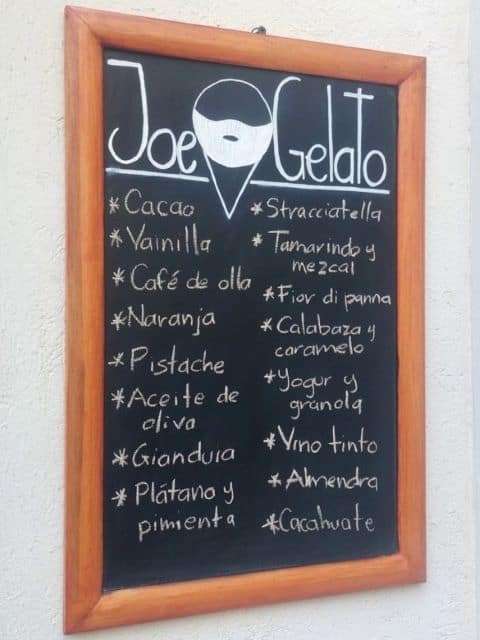 Joe Gelato
* Cacao
* Vainilla
* Café de olla
* Naranja
* Pistache
* Aceite de
oliva
* Gianduia
* Plátano y
pimienta
* Stracciatella
* Tamarindo y
mezcal
* Fior di panna
* Calabaza y
caramelo
* Yogur y
granola
* Vino tinto
* Almendra
* Cacahuate